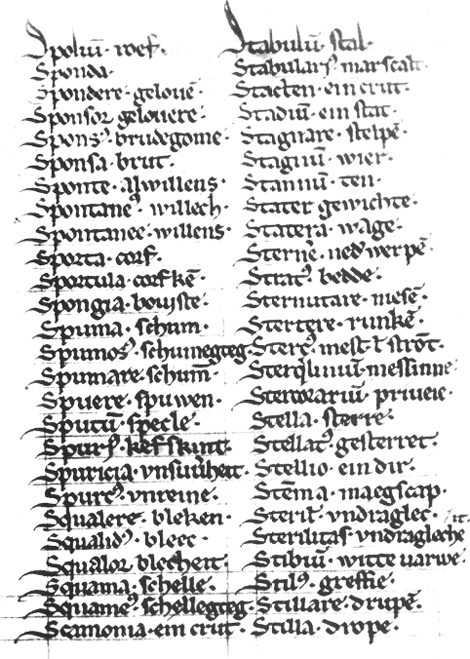 Spoliū· roef·
Sponda·
Spondere· gelouē·
Sponsor gelouere·
Spons⁹· brudegome·
Sponsa· brut·
Sponte· alwillens·
Spontane⁹· willech·
Spontanee· willens·
Sporta· corf·
Sportula· corfkē·
Spongia·
Spuma· schum·
Spumos⁹· schumegteg·
Spumare· schum̄·
Spuere· spuwen·
Sputū· specle·
Spuri⁹· kefskint·
Spuricia· vnsuūheit·
Spurc⁹· vnreine·
Squalere· bleken·
Squalid⁹· blecc·
Squalor· blecheit·
Squama· schelle·
Squame⁹· schellegteg·
Scamonia· ein crut·
Stabulū· stal·
Stabulari⁹· marscalc·
Stacten· ein crut·
Stadiū· ein stat·
Stagnare· stelpē·
Stagnū· wier·
Stannū· ten·
Stater gewichte·
Statera· wage·
Sternē· nedwerpē·
Strat⁹· bedde·
Sternutare· niesē·
Stertere· runkē·
Sterc⁹· mest ł strōt·
Sterqliniū· messinne·
Stercorariū· priueie·
Stella· sterre·
Stellat⁹· gesterret·
Stellio· ein dir·
Stēma· maegscap·
Steril'· vndraglec·
Sterilitas· vndragleche it·
Stibiū· witte uarwe·
Stil⁹· greffie·
Stillare· drupē·
Stilla· drope·